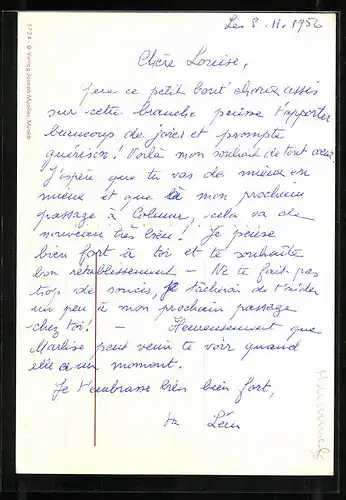 Le 8.11.1956
Chère Louise,
que ce petit bout assis
sur cette branche puisse t'apporter
beaucoup de joies et prompte
guérison! Voilà mon souhait de tout cœur.
J'espère que tu vas de mieux en
mieux et que à mon prochain
passage à, cela va de
nouveau très bien! Je pense
bien fort à toi et te souhaite
bon rétablissement — Ne te fait pas
trop de soucis, je tâcherai de t'aider
un peu à mon prochain passage
chez toi! — Heureusement que
Marlise peut venir te voir quand
elle a un moment.
Je t'embrasse bien bien fort,
ta
Hummel